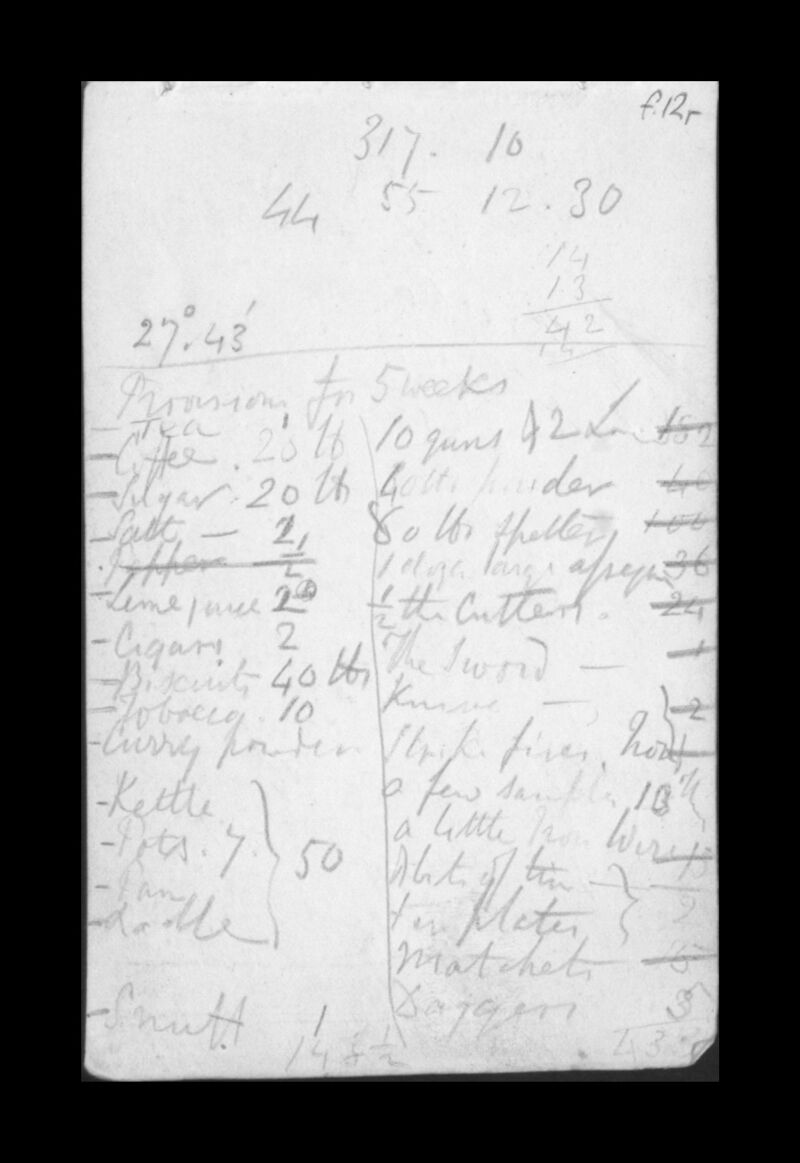 f.12r
317. 10
44 55 12.30
14
13
42
27°.43'
Provisions for 5 weeks
- Tea 1
- Coffee . 20 lb
- Sugar . 20 lbs
- Salt — 2
- Pepper 1/2
- Lime juice 2
- Cigars 2
- Biscuits 40 lbs
- Tobacco . 10
- Curry powder
- Kettle
- Pots . 7. 50
- Pan
- Ladle
- Snuff 1
14
10 guns & 2 152
40 lbs powder 40
80 lbs spelter 100
1 doz large 36
1/2 the Cutters . 24
The Sword — 1
Knives — 2
fires. Iron
a few samples 10
a little Iron Wire
A bit of tin —
tin plates 2
Matchets 5
Daggers 3
43